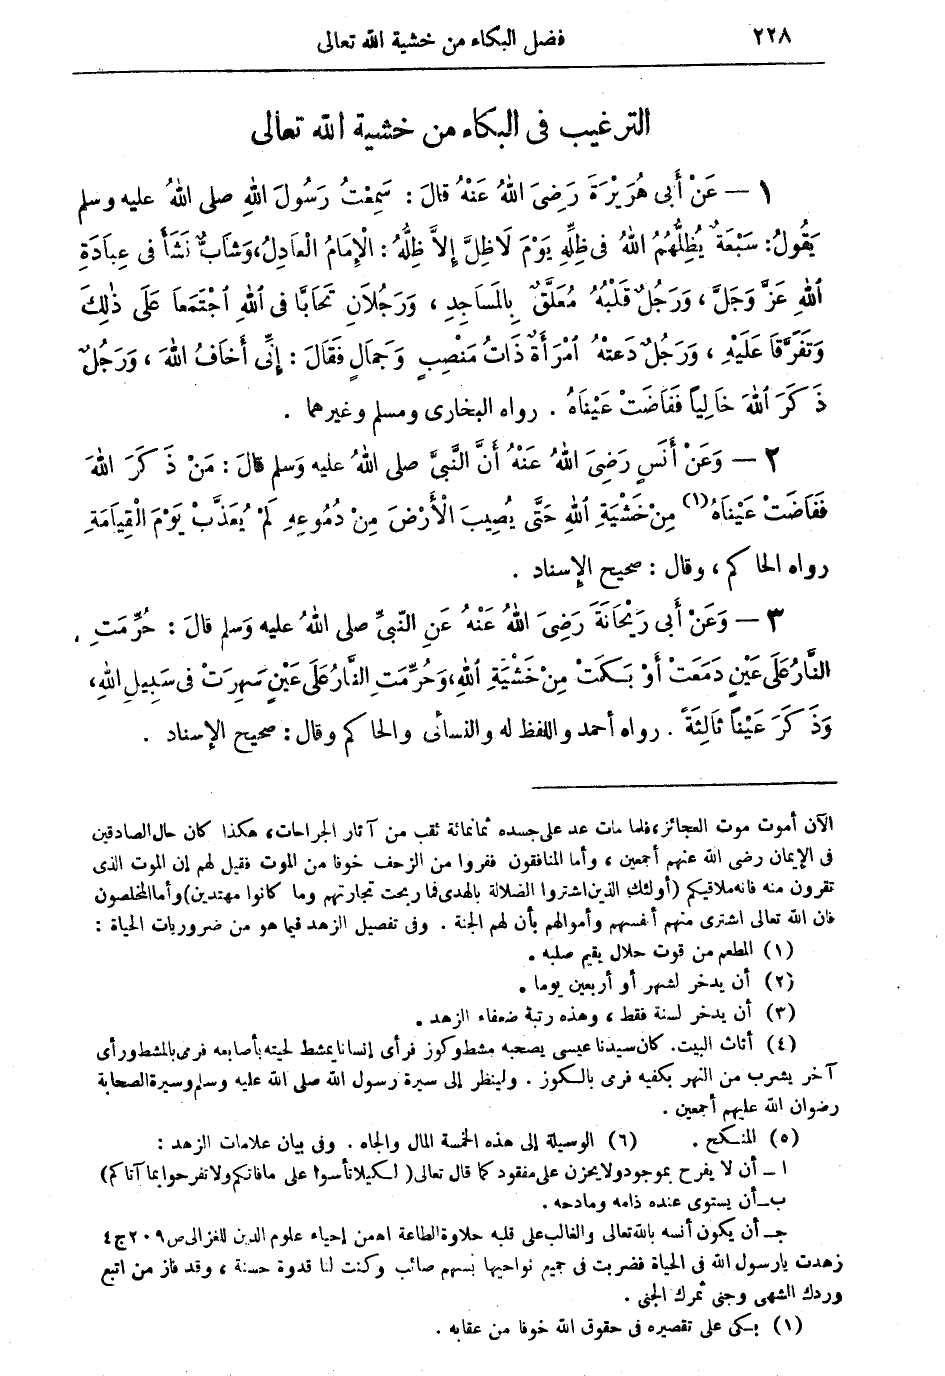 ٢٢٨ فضل البكاء من خشية الله تعالى
الترغيب فى البكاء من خشية الله تعالى
١ – عَنْ أَبى هُرَيْرَةَ رَضِىَ اللهُ عَنْهُ قالَ : سَمِعْتُ رَسُولَ اللهِ صلى اللهُ عليه وسلم
يَقُولُ: سَبْعَةٌ يُظِلُّهُمُ اللهُ فى ظِلِّهِ يَوْمَ لَاظِلَّ إِلاَّ ظِلُّهُ : الْإِمَامُ الْعَادِلُ، وَشَابٌّ نَشَأَ فى عِبَادَةِ
اللهِ عَزَّ وَجَلَّ ، وَرَجُلٌ قَلْبُهُ مُعَلَّقٌ بِالمَسَاجِدِ ، وَرَجُلَانِ تَحَابَّا فى اللهِ اجْتَمَعَا عَلَى ذٰلِكَ
وَتَفَرَّقَا عَلَيْهِ ، وَرَجُلٌ دَعتْهُ امْرَأَةٌ ذَاتُ مَنْصِبٍ وَجَمالٍ فَقَالَ : إِنِّى أَخَافُ اللهَ ، وَرَجُلٌ
ذَكَرَ اللهَ خَالِياً فَفَاضَتْ عَيْنَاهُ . رواه البخارى ومسلم وغيرهما .
٢ – وَعَنْ أَنَسٍ رَضِىَ اللهُ عَنْهُ أَنَّ النَّبِىَّ صلى اللهُ عليه وَسلم قالَ : مَنْ ذَكَرَ اللهَ
فَفَاضَتْ عَيْنَاهُ (١) مِنْ خَشْيَةِ اللهِ حَتَّى يُصِيبَ الْأَرْضَ مِنْ دُمُوعِهِ لَمْ يُعَذَّبْ يَوْمَ الْقِيَامَةِ
رواه الحاكم ، وقال : صحيح الإسناد .
٣ – وَعَنْ أَبى رَيْحَانَةَ رَضِىَ اللهُ عَنْهُ عَنِ النَّبىِّ صلى اللهُ عليه وَسلم قالَ : حُرِّمَتِ
النَّارُ عَلَى عَيْنٍ دَمَعَتْ أَوْ بَكَتْ مِنْ خَشْيَةِ اللهِ، وَحُرِّمَتِ النَّارُ عَلَى عَيْنٍ سَهِرَتْ فى سَبِيلِ اللهِ،
وَذَكَرَ عَيْناً ثَالِثَةً . رواه أحمد واللفظ له والنسائى والحاكم وقال : صحيح الإسناد .
الآن أموت موت العجائز، فلما مات عد على جسده ثمانمائة ثقب من آثار الجراحات، هكذا كان حال الصادقين
فى الإيمان رضى الله عنهم أجمعين ، وأما المنافقون ففروا من الزحف خوفا من الموت فقيل لهم إن الموت الذى
تفرون منه فانه ملاقيكم (أولئك الذين اشتروا الضلالة بالهدى فما ربحت تجارتهم وما كانوا مهتدين) وأما المخلصون
فان الله تعالى اشترى منهم أنفسهم وأموالهم بأن لهم الجنة . وفى تفصيل الزهد فيما هو من ضروريات الحياة :
(١) المطعم من قوت حلال يقيم صلبه .
(٢) أن يدخر لشهر أو أربعين يوما .
(٣) أن يدخر لسنة فقط ، وهذه رتبة ضعفاء الزهد .
(٤) أثاث البيت. كان سيدنا عيسى يصحبه مشط وكوز فرأى إنسانا يمشط لحيته بأصابعه فرمى بالمشط ورأى
آخر يشرب من النهر بكفيه فرمى بالكوز . ولينظر إلى سيرة رسول الله صلى الله عليه وسلم وسيرة الصحابة
رضوان الله عليهم أجمعين .
(٥) المنكح . (٦) الوسيلة إلى هذه الخمسة المال والجاه . وفى بيان علامات الزهد :
ا – أن لا يفرح بموجود ولا يحزن على مفقود كما قال تعالى ( لكيلا تأسوا على مافاتكم ولا تفرحوا بما آتاكم)
ب – أن يستوى عنده ذامه ومادحه .
جـ – أن يكون أنسه بالله تعالى والغالب على قلبه حلاوة الطاعة اه من إحياء علوم الدين للغزالى ص ٢٠٩ ج٤
زهدت يارسول الله فى الحياة فضربت فى جميع نواحيها بسهم صائب وكنت لنا قدوة حسنة ، وقد فاز من اتبع
وردك الشهى وجنى ثمرك الجنى .
(١) بكى على تقصيره فى حقوق الله خوفا من عقابه .